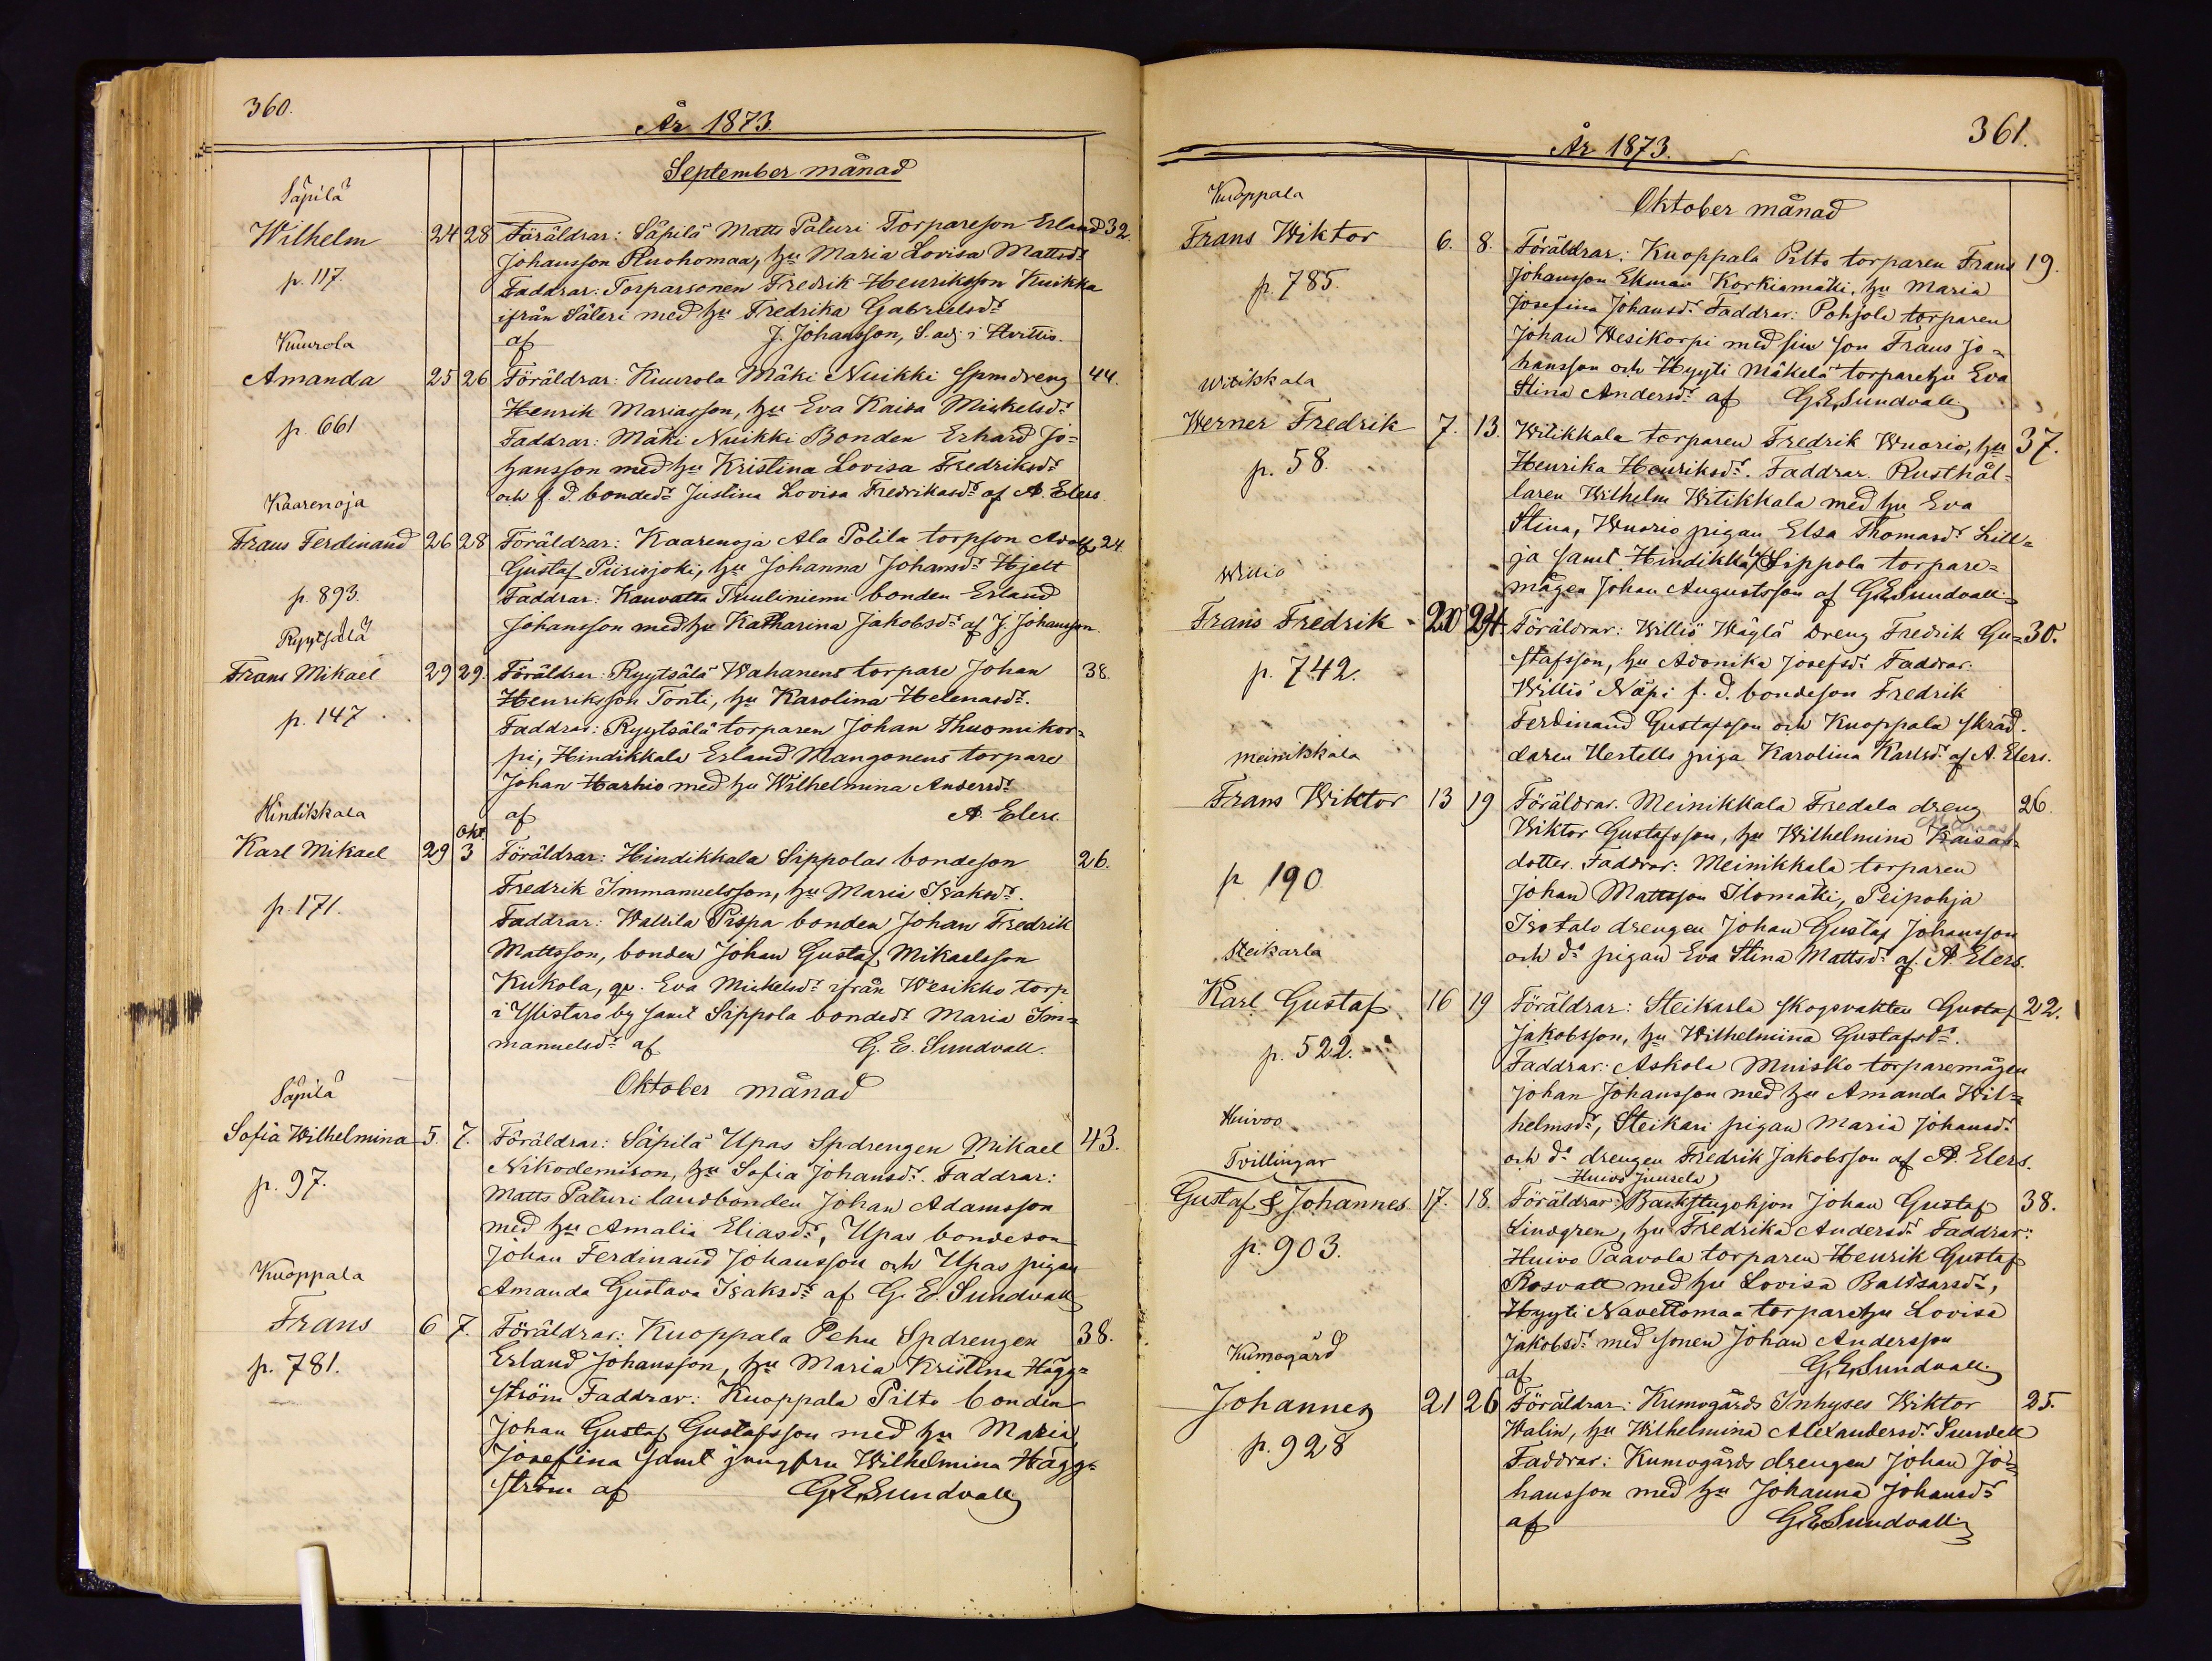 360.
År 1873.
September månad
Säpilä
Wilhelm 24 28 Föräldrar: Säpilä Matts Paturi Torpareson Erland 32.
Johansson Ruohomaa, hu Maria Lovisa Mattsdr
p. 117. Faddrar: Torparsonen Fredrik Henriksson Kuikka
ifrån Säleri med hu Fredrika Gabrielsdr
af J. Johansson, S. adj. i Hvittis.
Kuurola
Amanda 25 26 Föräldrar: Kuurola Mäki Nuikki Spmdreng 44.
Henrik Mariasson, hu Eva Kaisa Mickelsdr
p. 661 Faddrar: Mäki Nuikki Bonden Erhard Jo=
hansson med hu Kristina Lovisa Fredriksdr
och f. d. bondedr Justina Lovisa Fredrikasdr af A. Elers.
Kaarenoja
Frans Ferdinand 26 28 Föräldrar: Kaarenoja Ala Polila torpson Adolf 24.
Gustaf Piirisjoki, hu Johanna Johansdr Hjelt
p. 893. Faddrar: Kauvatsa Tuuliniemi bonden Erland
Johansson med hu Katharina Jakobsdr af J. Johansson.
Ryytsälä
Frans Mikael 29 29. Föräldrar: Ryytsälä Wahanens torpare Johan 38.
Henriksson Tonti, hu Karolina Helenasdr.
p. 147. Faddrar: Ryytsälä torparen Johan Thuomikor=
pi, Hindikkala Erland Mangonens torpare
Johan Harhio med hu Wilhelmina Andersdr
af A. Elers.
Hindikkala
Karl Mikael 29 Okt. 3 Föräldrar: Hindikkala Sippolas bondeson 26.
Fredrik Immanuelsson, hu Maria Isaksdr.
p. 171. Faddrar: Wallila Pispa bonden Johan Fredrik
Mattsson, bonden Johan Gustaf Mikaelsson
Kukola, qv. Eva Mickelsdr ifrån Wesikko torp
i Ylistaro by samt Sippola bondedr Maria Im=
manuelsdr af G. E. Sundvall.
Oktober månad
Säpilä
Sofia Wilhelmina 5. 7. Föräldrar: Säpilä Upas Spdrengen Mikael 43.
Nikodemison, hu Sofia Johansdr. Faddrar:
p. 97. Matts Paturi landbonden Johan Adamsson
med hu Amalia Eliasdr, Upas bondeson
Johan Ferdinand Johansson och Upas pigan
Amanda Gustava Isaksdr af G. E. Sundvall
Kuoppala
Frans 6 7. Föräldrar: Kuoppala Pehu Spdrengen 38.
Erland Johansson, hu Maria Kristina Hägg=
p. 781. ström Faddrar: Kuoppala Pilto bonden
Johan Gustaf Gustafsson med hu Maria
Josefina samt jungfru Wilhelmina Hägg=
ström af G. E. Sundvall
361.
År 1873.
Oktober månad
Kuoppala
Frans Wiktor 6. 8. Föräldrar: Kuoppala Pilto torparen Frans 19.
p. 785. Johansson Ekman Korkiamäki, hu Maria
Josefina Johansdr. Faddrar: Pohjola torparen
Johan Wesikorpi med sin son Frans Jo=
hansson och Hyyti Mäkelä torparehu Eva
Stina Andersdr af G. E. Sundvall
Witikkala
Werner Fredrik 7. 13. Witikkala torparen Fredrik Wuorio, hu 37.
p. 58. Henrika Henriksdr. Faddrar. Rusthål=
laren Wilhelm Witikkala med hu Eva
Stina, Wuorio pigan Elsa Thomasdr Lill=
ja samt Hindikkala Sippola torpare=
mågen Johan Augustsson af G. E. Sundvall
Williö
Frans Fredrik 20 24 Föräldrar: Williö Wäylä dreng Fredrik Gu= 30.
stafsson, hu Adonika Josefsdr Faddrar.
p. 742. Williö Näpi f. d. bondeson Fredrik
Ferdinand Gustafsson och Kuoppala skräd=
daren Hertells piga Karolina Karlsdr af A. Elers.
Meinikkala
Frans Wiktor 13 19 Föräldrar. Meinikkala Fredala dreng 26.
Marias
Wiktor Gustafsson, hu Wilhelmina Kaisas=
dotter. Faddrar: Meinikkala torparen
p 190 Johan Mattsson Ilomäki, Peipohja
Isotalo drengen Johan Gustaf Johansson
och do pigan Eva Stina Mattsdr af. A. Elers.
Steikarla
Karl Gustaf 16 19 Föräldrar: Steikarla skogsvakten Gustaf 22.
Jakobsson, hu Wilhelmiina Gustafsdr.
p. 522. Faddrar: Askola Muisko torparemågen
Johan Johansson med hu Amanda Wil=
helmsdr, Steikari pigan Maria Johansdr
och do drengen Fredrik Jakobsson af A. Elers.
Huivoo
Tvillingar
Huivo Juusela
Gustaf & Johannes 17. 18. Föräldrar: Backstugohjon Johan Gustaf 38.
Lindgren, hu Fredrika Andersdr Faddrar:
p. 903. Huivo Paavola torparen Henrik Gustaf
Rosvall med hu Lovisa Baltsarsdr,
Hyyti Navettomaa torparehu Lovisa
Jakobsdr med sonen Johan Andersson
af G. E. Sundvall
Kumogård
Johannes 21 26 Föräldrar: Kumogårds Inhyses Wiktor 25.
Walin, hu Wilhelmina Alexandersdr Sundell
p. 928 Faddrar: Kumogårds drengen Johan Jo=
hansson med hu Johanna Johansdr
af G. E. Sundvall